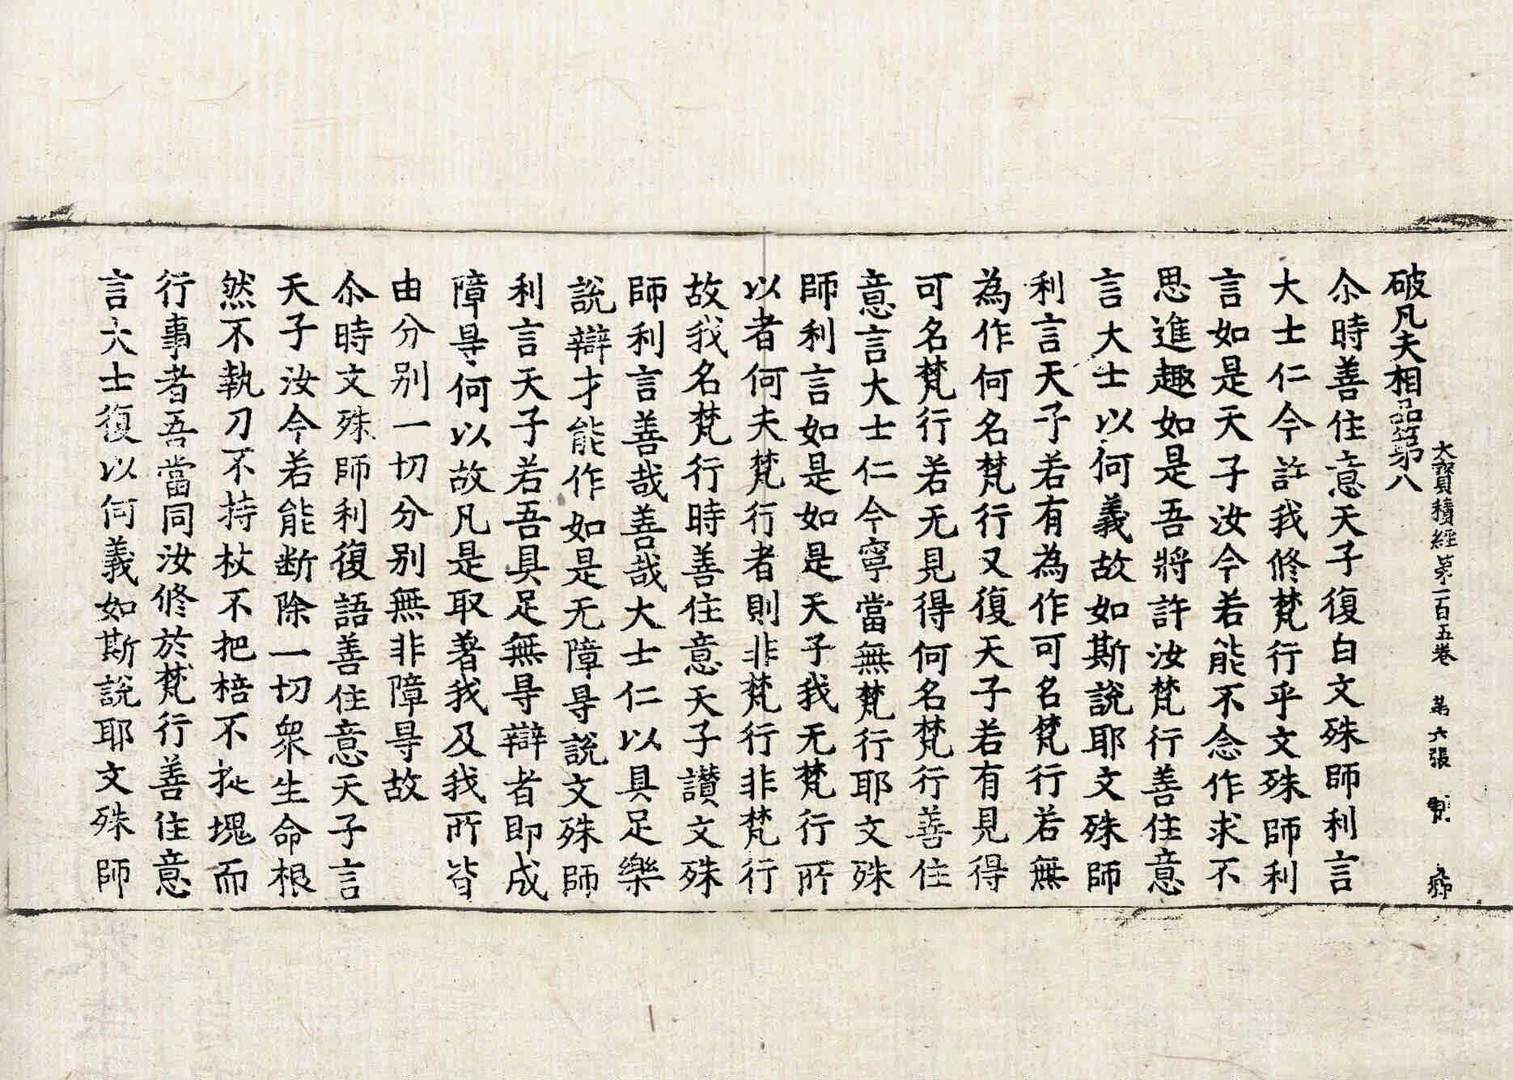 大寶積經第一百五卷 第六張
破凡夫相品第八
尒時善住意天子復白文殊師利言
大士仁今許我修梵行乎文殊師利
言如是天子汝今若能不念作求不
思進趣如是吾將許汝梵行善住意
言大士以何義故如斯說耶文殊師
利言天子若有為作可名梵行若無
為作何名梵行又復天子若有見得
可名梵行若无見得何名梵行善住
意言大士仁今寧當無梵行耶文殊
師利言如是如是天子我无梵行所
以者何夫梵行者則非梵行非梵行
故我名梵行時善住意天子讃文殊
師利言善哉善哉大士仁以具足樂
說辯才能作如是无障㝵說文殊師
利言天子若吾具足無㝵辯者即成
障㝵何以故凡是取著我及我所皆
由分别一切分别無非障㝵故
尒時文殊師利復語善住意天子言
天子汝今若能断除一切衆生命根
然不執刀不持杖不把棓不塊而
行事者吾當同汝修於梵行善住意
言大士復以何義如斯說耶文殊師